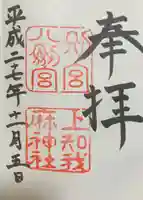 奉拝
別宮
八剣宮
上知我
麻神社
平成二七年十一月五日